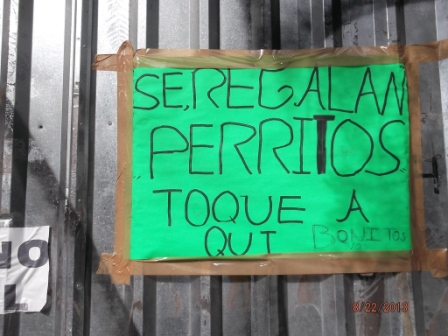 SE,REGALAN
PERRITOS
TOQUE A
QUI BONITOS
NO
L
8/22/2013